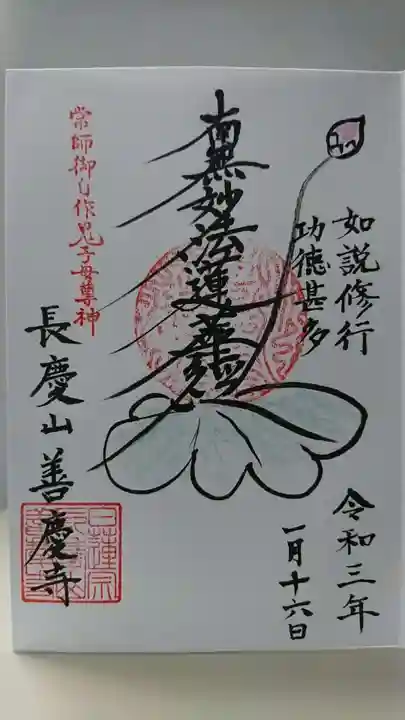 如説修行
功徳甚多
南無妙法蓮華経
常師御自作鬼子母尊神
長慶山善慶寺
令和三年
一月十六日
日蓮宗